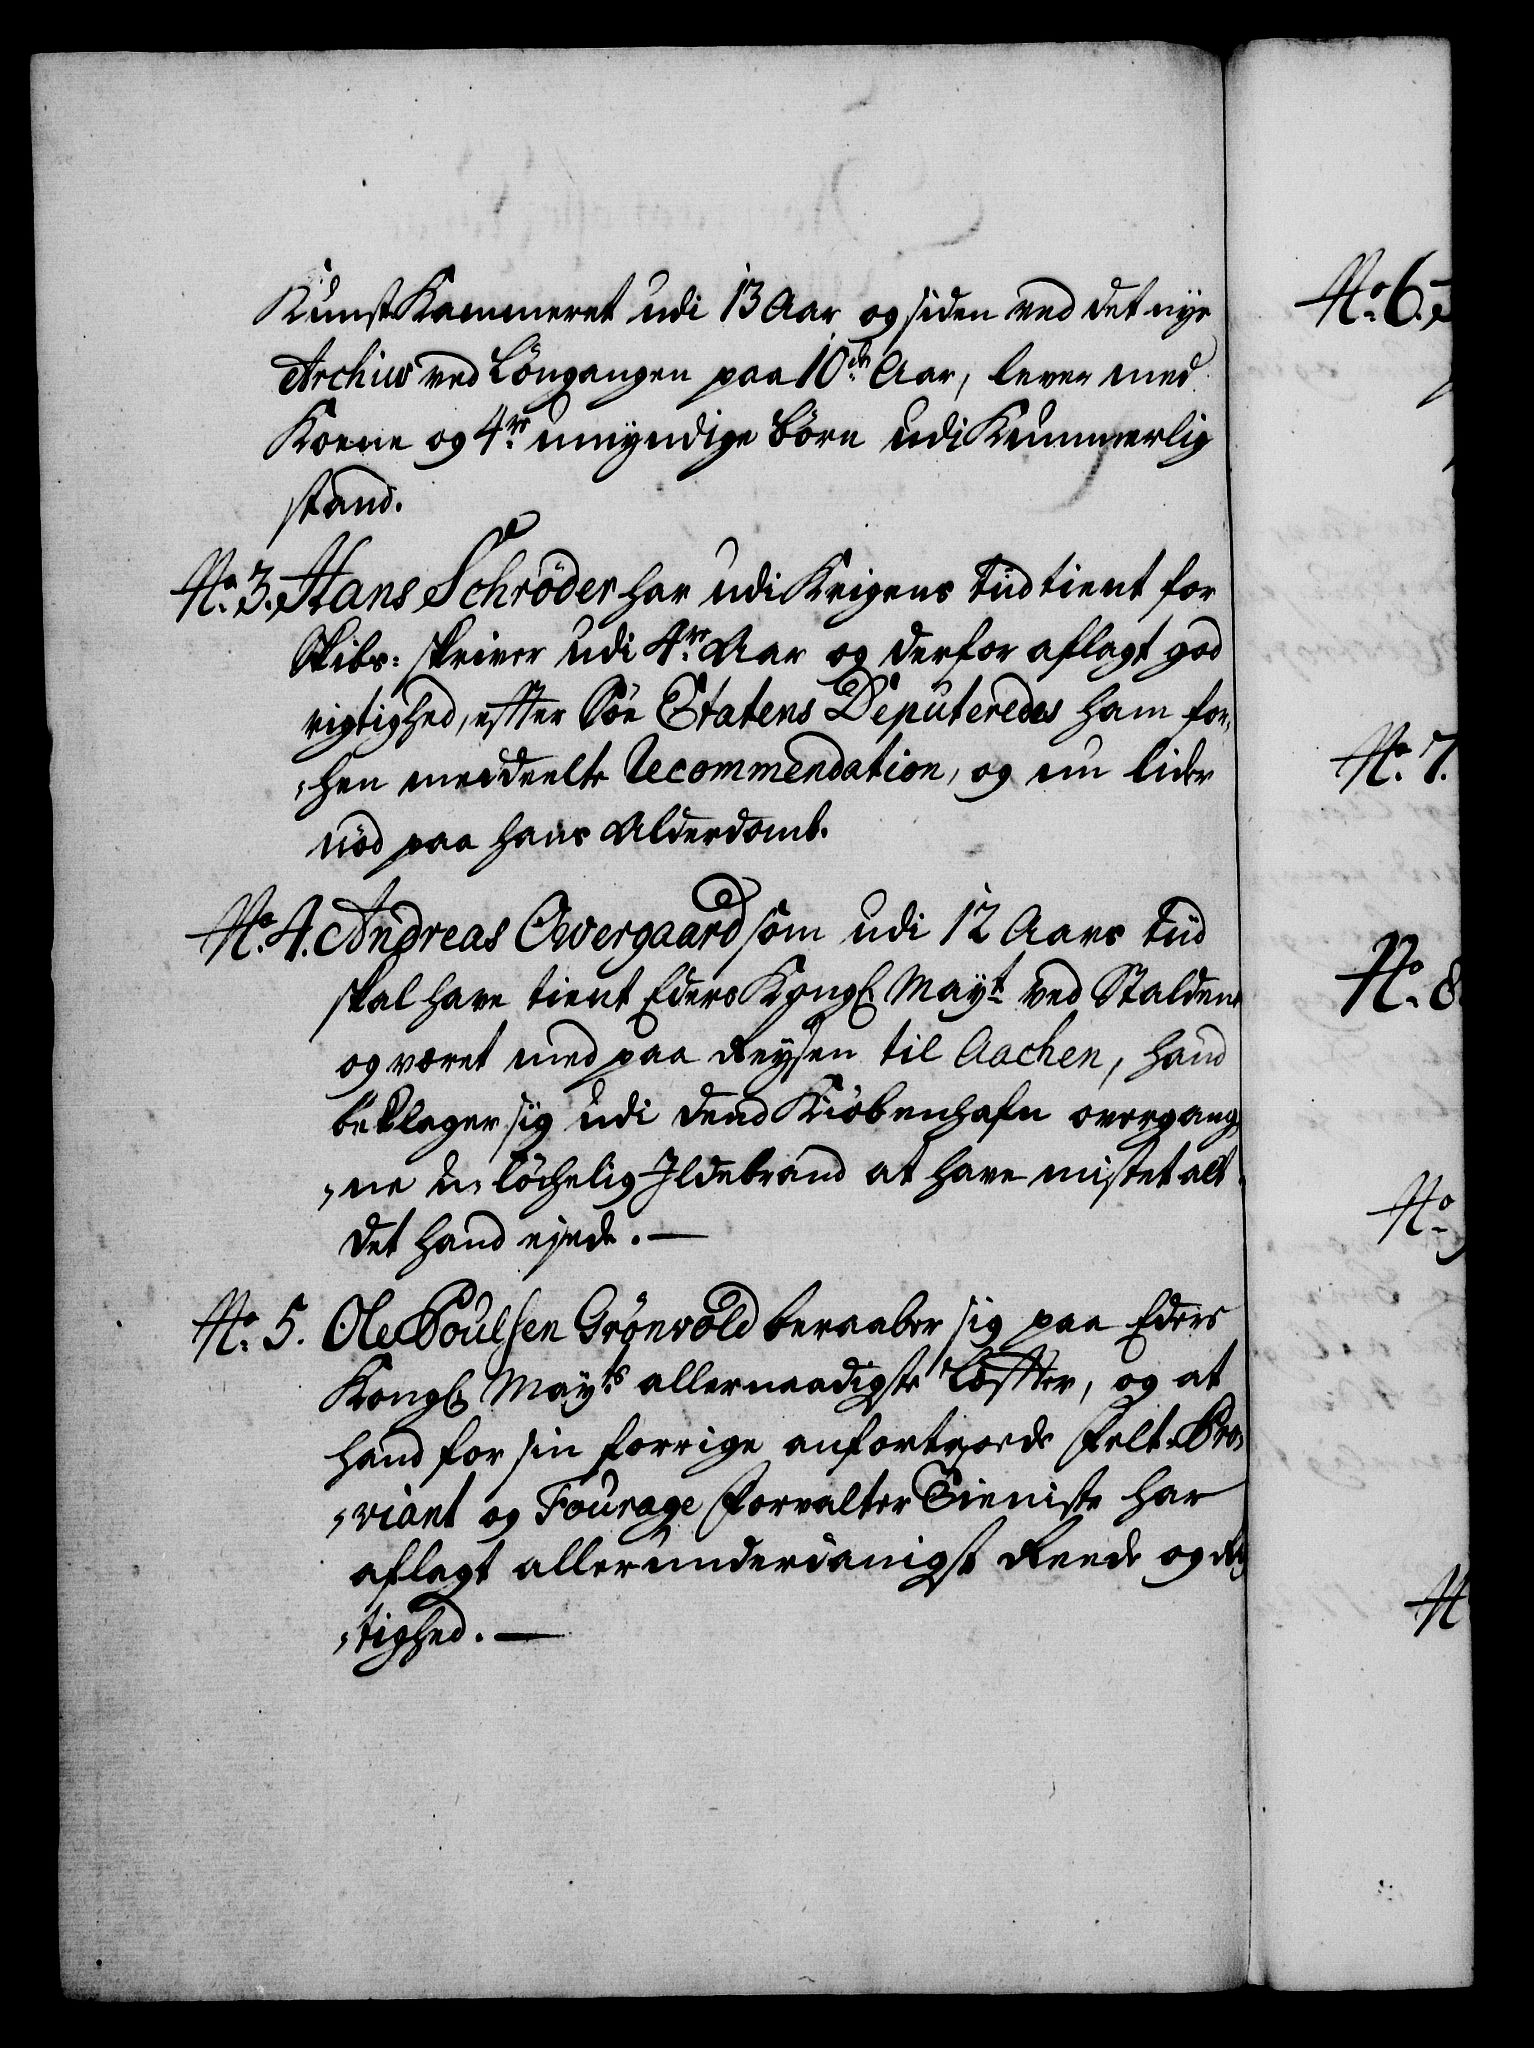 KunstKammeret udi 13 Aar og siden ved det nye
Archiv ved Löngangen paa 10de Aar, lever med
Kone og 4re umyndige børn udi Kummerlig
stand.
No. 3. Hans Schröder har udi Krigens tiid tient for
Skibs: skriver udi 4re Aar og derfor aflagt god
rigtighed, effter Söe Etatens Deputeredes ham for,
,hen meddeelte Recommendation, og nu lider
nöd paa hans Alderdomb.
No. 4. Andreas Owergaard som udi 12 Aars tiid
skal have tient Eders Kongl Mayt ved Stalden
og været med paa Reysen til Aachen, hand
beklager sig udi dend Kiöbenhafn overgang,
,ne u,löchelig Ildebrand at have mistet alt
det hand ejede. —
No. 5. Ole Poulsen Grönvold beraaber sig paa Eders
Kongl Mayts allernaadigste Löffter, og at
hand for sin forrige anfortroede Felt-Pro,
,viant og Fourage Forvalter Tieniste har
aflagt allerunderdanigst Reede og Rig
,tighed. —
No. 6.
No. 7.
No. 8
No.
N